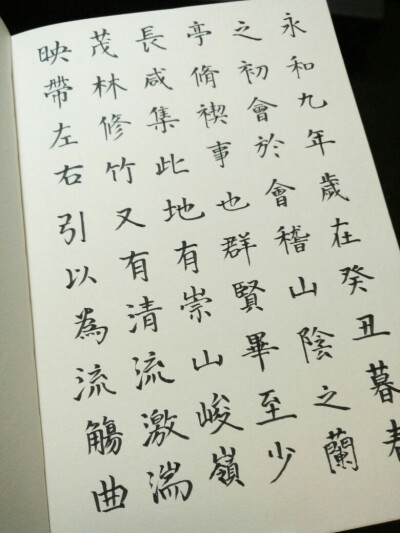 永和九年歲在癸丑暮春
之初會於會稽山陰之蘭
亭脩禊事也群賢畢至少
長咸集此地有崇山峻嶺
茂林修竹又有清流激湍
映帶左右引以為流觴曲